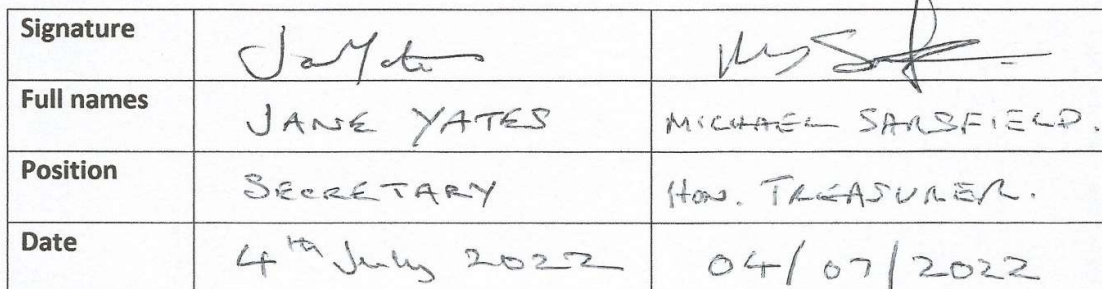 Signature
Full names JANE YATES MICHAEL SARSFIELD.
Position SECRETARY HON. TREASURER.
Date 4th July 2022 04/07/2022